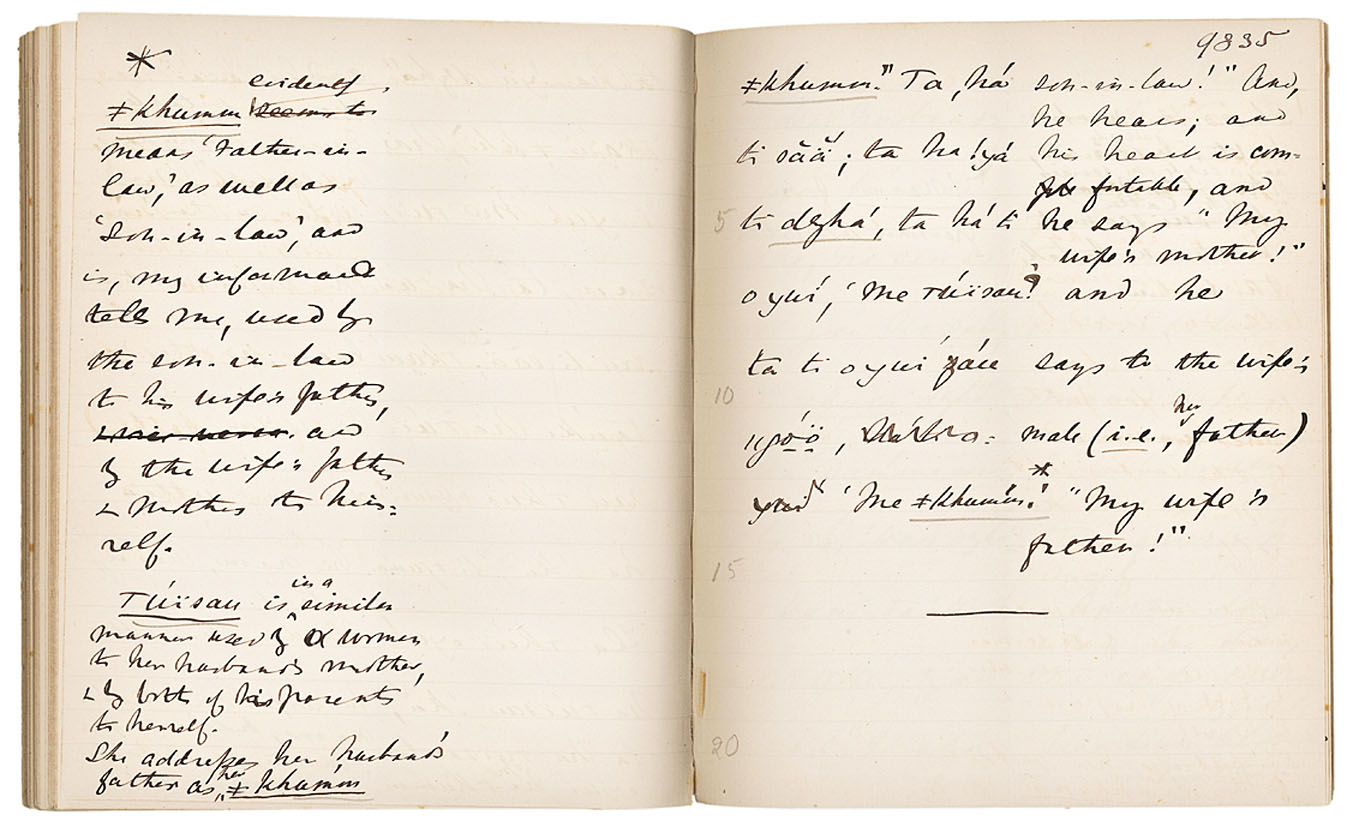 *
evidently
ǂkhumm seems to
means 'Father-in-
law,' as well as
'son-in-law', and
is, my informant
tells me, used by
the son-in-law
to his wife's father,
and
by the wife's father
& mother to him-
self.
in a
Túïsau is similar
manner used by a woman
to her husband's mother,
& by both of his parents
to herself.
She addresses her husband's
father as her ǂkhumm
9835
ǂkhumm." Ta, há son-in-law!" And,
he hears; and
ti sãã; ta ha !yá his heart is com-
fortable, and
5 ti, ta há ti he says "My
wife's mother!"
'me Túïsau! and he
ta ti says to the wife's
10
her
male (i.e., father)
*
'me ǂkhumm! "My wife's
father!"
15
20